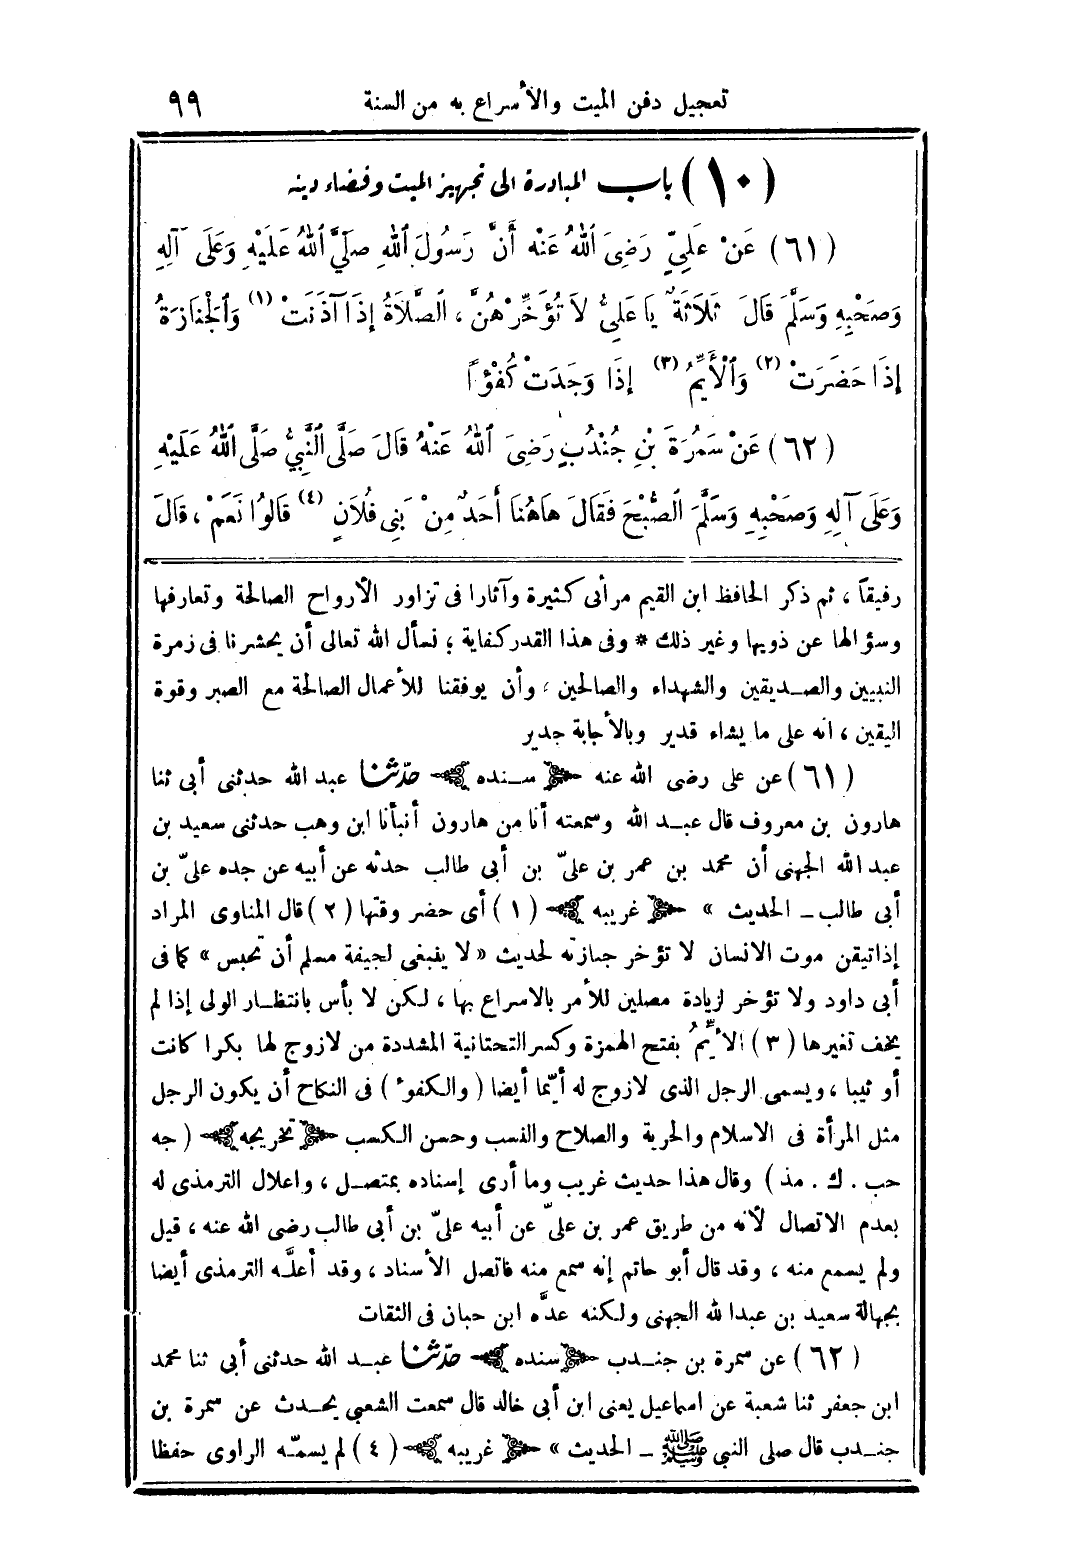 تعجيل دفن الميت والأسراع به من السنة ٩٩
(١٠) باب المبادرة الى تجهيز الميت وقضاء دينه
(٦١) عَنْ عَلِيٍّ رَضِىَ اللهُ عَنْه أَنَّ رَسُولَ اللهِ صَلَّى اللهُ عَلَيْهِ وَعَلَى آلِهِ
وَصَحْبِهِ وَسَلَّمَ قَالَ ثَلَاثَةٌ يَا عَلِىُّ لَا تُؤَخِّرْهُنَّ ، الصَّلَاةُ إِذَا آذَنَتْ (١) وَالْجْنَازَةُ
إِذَا حَضَرَتْ (٢) وَالْأَيِّمُ (٣) إِذَا وَجَدَتْ كُفْؤًا
(٦٢) عَنْ سَمُرَةَ بْنِ جُنْدُبٍ رَضِىَ اللهُ عَنْهُ قَالَ صَلَّى النَّبِيُّ صَلَّى اللهُ عَلَيْهِ
وَعَلَى آلِهِ وَصَحْبِهِ وَسَلَّمَ الصُّبْحَ فَقَالَ هَاهُنَا أَحَدٌ مِنْ بَنِى فُلَانٍ (٤) قَالُوا نَعَمْ ، قَالَ
رفيقاً ، ثم ذكر الحافظ ابن القيم مرأى كثيرة وآثارا فى تزاور الأرواح الصالحة وتعارفها
وسؤالها عن ذويها وغير ذلك * وفى هذا القدر كفاية ؛ نسأل الله تعالى أن يحشرنا فى زمرة
النبيين والصديقين والشهداء والصالحين ، وأن يوفقنا للأعمال الصالحة مع الصبر وقوة
اليقين ، انه على ما يشاء قدير وبالأجابة جدير
(٦١) عن على رضى الله عنه سنده حدّثنا عبد الله حدثنى أبى ثنا
هارون بن معروف قال عبد الله وسمعته أنا من هارون أنبأنا ابن وهب حدثنى سعيد بن
عبد الله الجهنى أن محمد بن عمر بن علىّ بن أبى طالب حدثه عن أبيه عن جده علىّ بن
أبى طالب ـ الحديث » غريبه (١) أى حضر وقتها (٢) قال المناوى المراد
إذا تيقن موت الانسان لا تؤخر جنازته لحديث « لا ينبغى لجيفة مسلم أن تحبس » كما فى
أبى داود ولا تؤخر لزيادة مصلين للأمر بالاسراع بها ، لكن لا بأس بانتظار الولى إذا لم
يخف تغيرها (٣) الأيِّمُ بفتح الهمزة وكسر التحتانية المشددة من لا زوج لها بكرا كانت
أو ثيبا ، ويسمى الرجل الذى لا زوج له أيّما أيضا (والكفوء) فى النكاح أن يكون الرجل
مثل المرأة فى الاسلام والحرية والصلاح والنسب وحسن الكسب تخريجه (جه
حب . ك . مذ) وقال هذا حديث غريب وما أرى إسناده بمتصل ، واعلال الترمذى له
بعدم الاتصال لأنه من طريق عمر بن علىّ عن أبيه علىّ بن أبى طالب رضى الله عنه ، قيل
ولم يسمع منه ، وقد قال أبو حاتم إنه سمع منه فاتصل الأسناد ، وقد أعلَّه الترمذى أيضا
بجهالة سعيد بن عبد الله الجهنى ولكنه عدَّه ابن حبان فى الثقات
(٦٢) عن سمرة بن جندب سنده حدّثنا عبد الله حدثنى أبى ثنا محمد
ابن جعفر ثنا شعبة عن اسماعيل يعنى ابن أبى خالد قال سمعت الشعبي يحدث عن سمرة بن
جندب قال صلى النبي ﷺ ـ الحديث » غريبه (٤) لم يسمّه الراوى حفظا